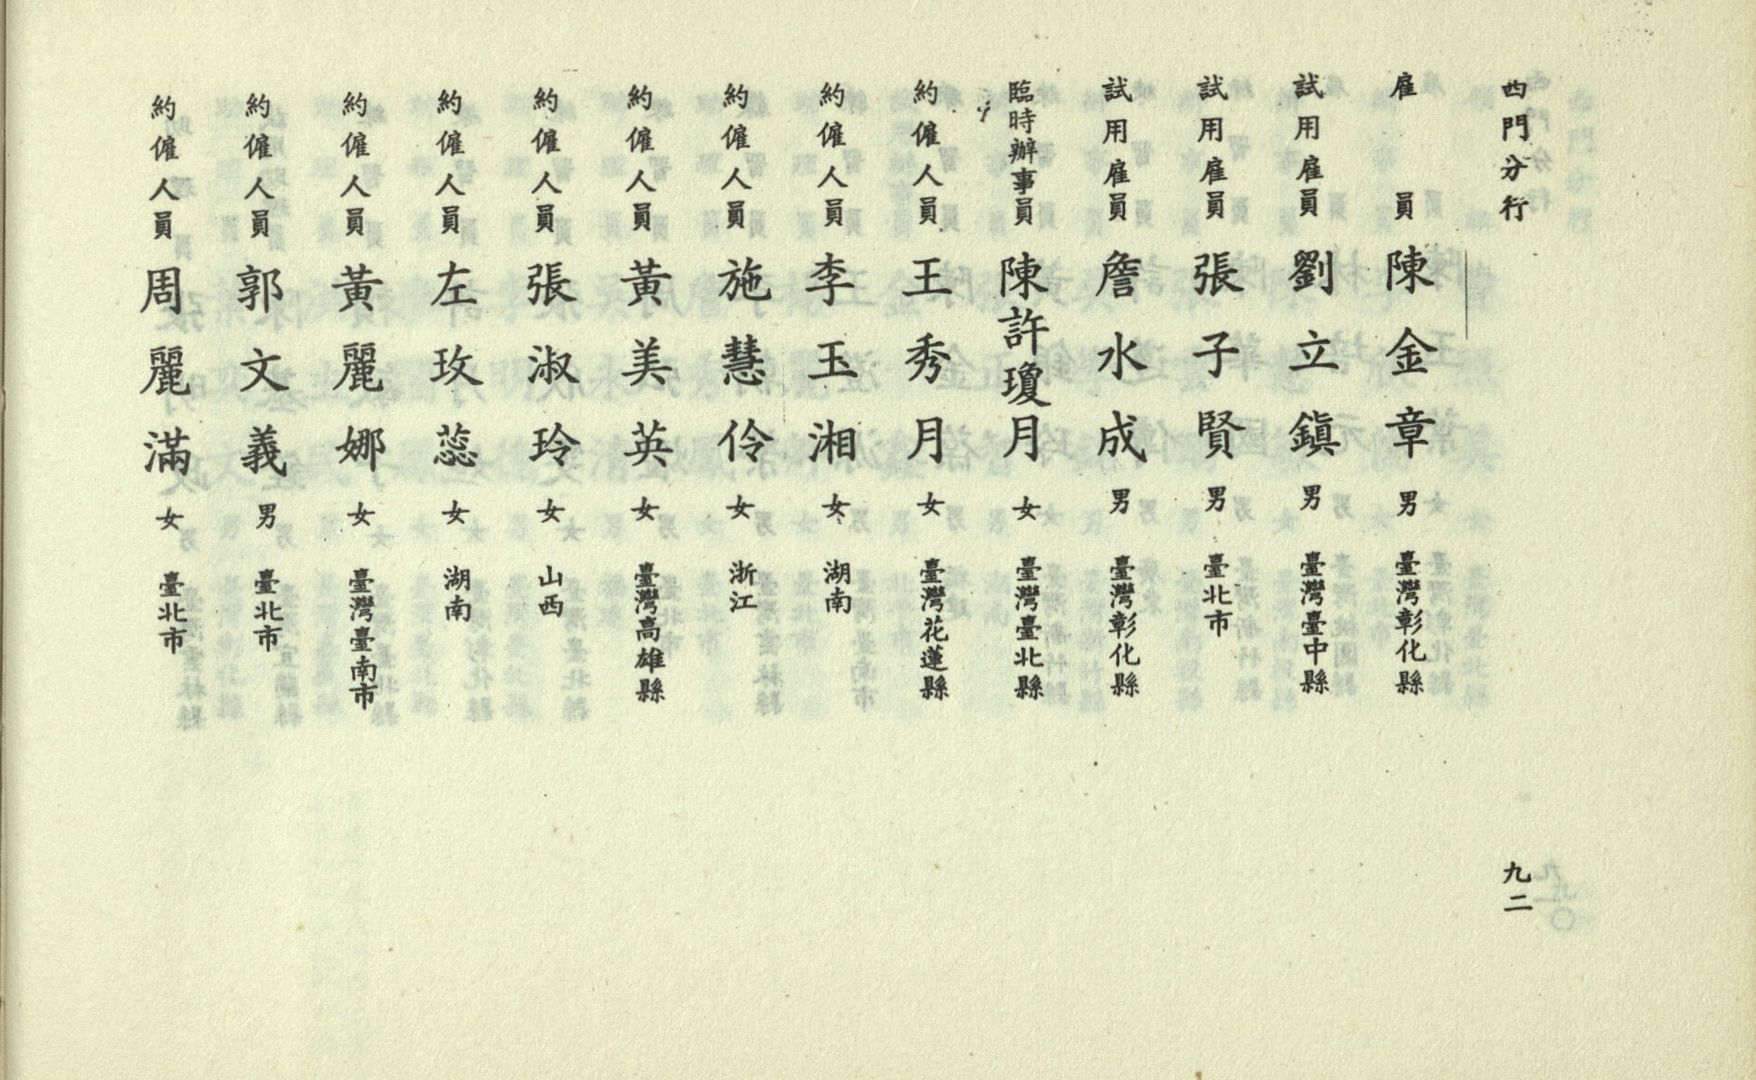 西門分行
九二
雇員 陳金章 男 臺灣彰化縣
試用雇員 劉立鎭 男 臺灣臺中縣
試用雇員 張子賢 男 臺北市
試用雇員 詹水成 男 臺灣彰化縣
臨時辦事員 陳許瓊月 女 臺灣臺北縣
約僱人員 王秀月 女 臺灣花蓮縣
約僱人員 李玉湘 女 湖南
約僱人員 施慧伶 女 浙江
約僱人員 黃美英 女 臺灣高雄縣
約僱人員 張淑玲 女 山西
約僱人員 左玫蕊 女 湖南
約僱人員 黃麗娜 女 臺灣臺南市
約僱人員 郭文義 男 臺北市
約僱人員 周麗滿 女 臺北市